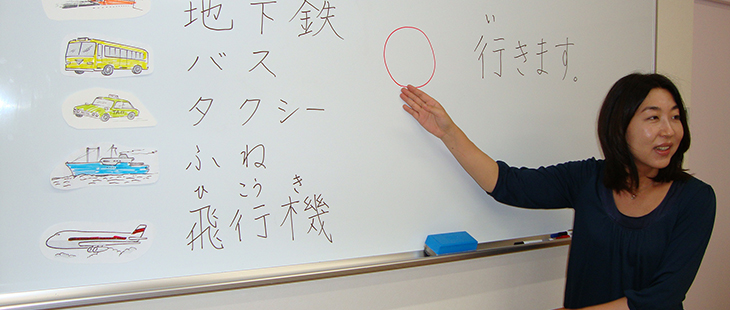 地下鉄
バス
タクシー
ふね
ひこうき
飛行機
い
行きます。
TAXI